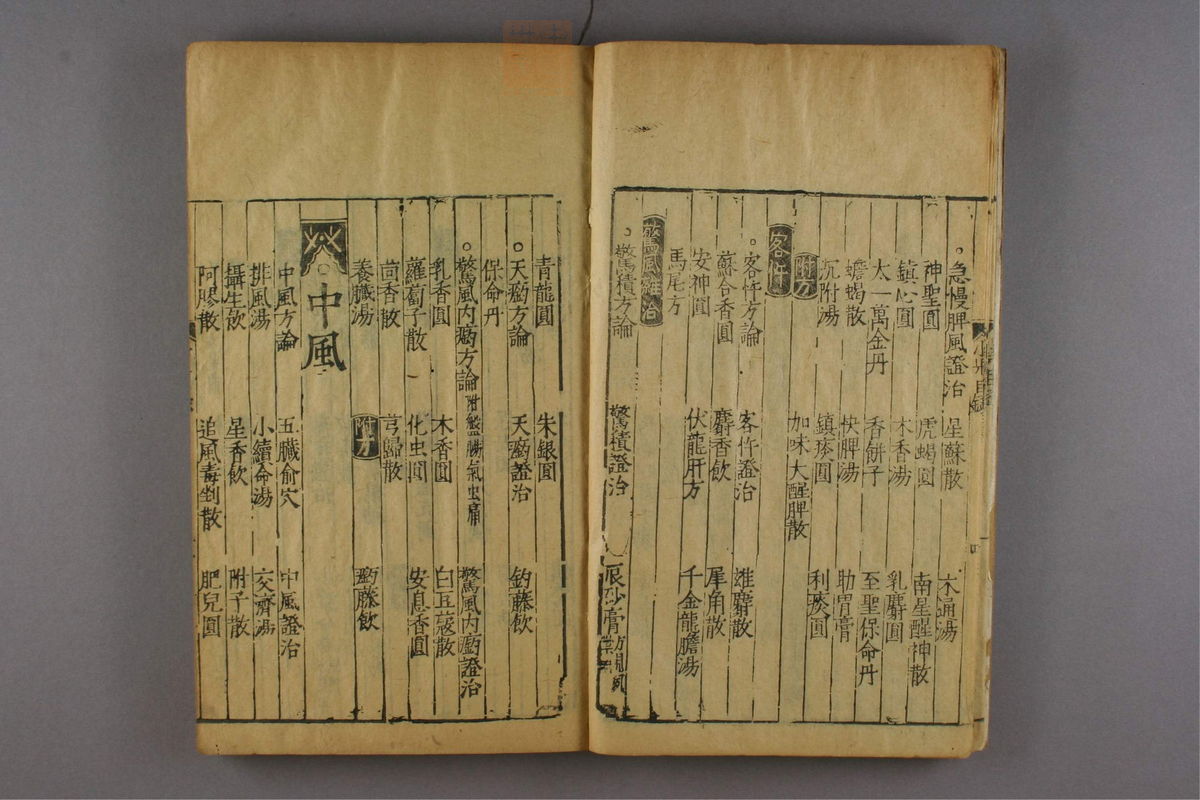 急慢脾風證治 星蘇散 木通湯
神聖圓 虎蝎圓 南星醒神散
鎮心圓 木香湯 乳麝圓
太一萬金丹 香餅子 至聖保命丹
蟾蝎散 快脾湯 助胃膏
沉附湯 鎮痰圓 利痰圓
附方 加味大醒脾散
客忤
客忤方論 客忤證治 雄麝散
蘇合香圓 麝香飲 犀角散
安神圓 伏龍肝方 千金龍膽湯
馬尾方
驚風雜治
驚積方論 驚積證治 辰砂膏
青龍圓 朱銀圓 釣藤飲
天癇方論 天癇證治
保命丹
驚風内癇方論附盤腸氣虫痛 驚風内癇證治
乳香圓 木香圓 白豆蔻散
蘿蔔子散 化虫圓 安息香圓
茴香散 芎歸散
養臟湯 附方 鈎藤飲
中風
中風方論 五臟俞穴 中風證治
排風湯 小續命湯 交濟湯
攝生飲 星香飲 附子散
阿膠散 追風毒剉散 肥兒圓